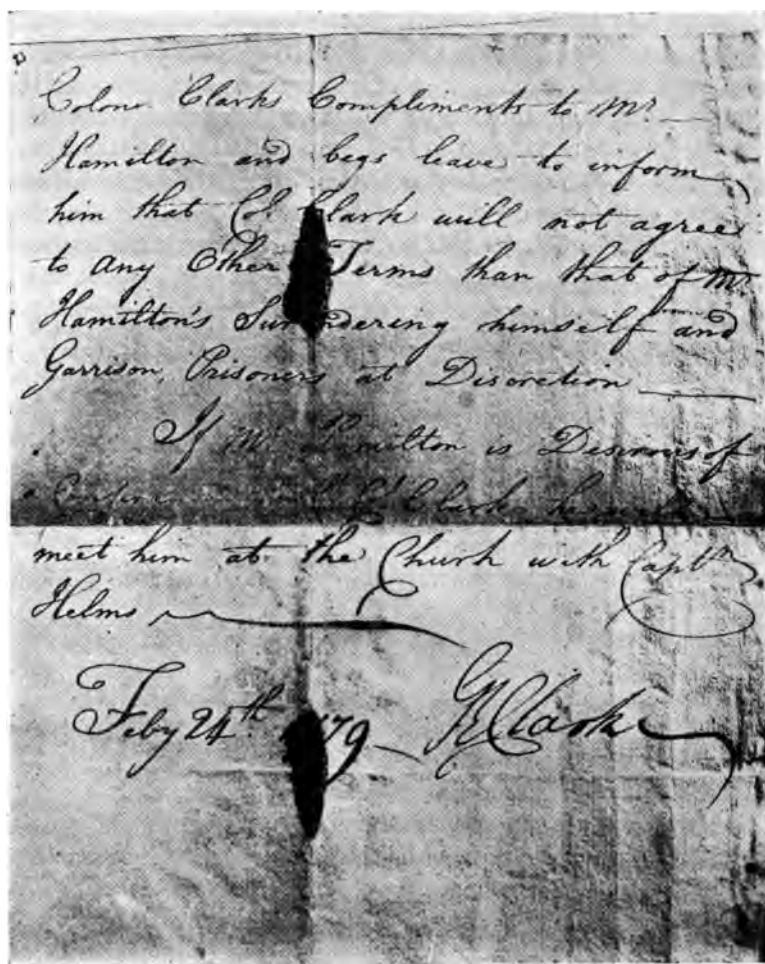 Colone Clarks Compliments to Mr
Hamilton and begs leave to inform
him that Col Clark will not agree
to any Other Terms than that of Mr
Hamilton's Surrendering himself and
Garrison, Prisoners at Discretion
If Mr Hamilton is Desirous of
Clark he will
meet him at the Church with Captn
Helms
Feby 24th 1779 GR Clark